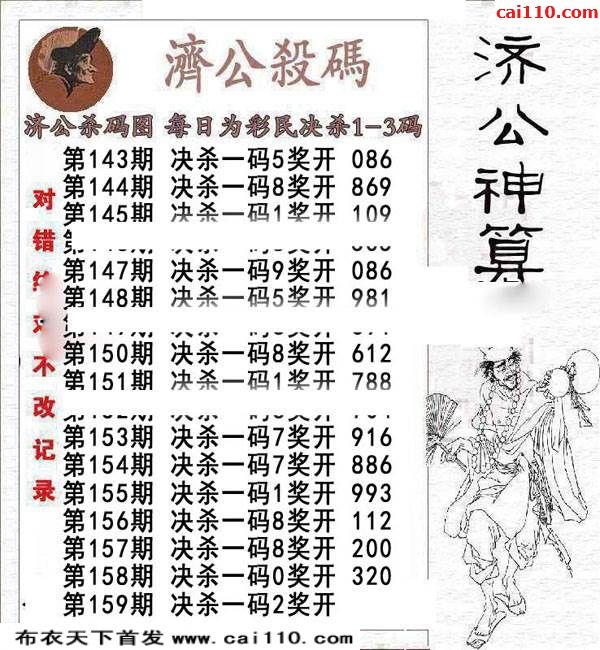 cai110.com
濟公殺碼
济公杀码图 每日为彩民决杀1-3码
第143期 决杀一码5奖开 086
第144期 决杀一码8奖开 869
第145期 决杀一码1奖开 109
第147期 决杀一码9奖开 086
第148期 决杀一码5奖开 981
第150期 决杀一码8奖开 612
第151期 决杀一码1奖开 788
第153期 决杀一码7奖开 916
第154期 决杀一码7奖开 886
第155期 决杀一码1奖开 993
第156期 决杀一码8奖开 112
第157期 决杀一码8奖开 200
第158期 决杀一码0奖开 320
第159期 决杀一码2奖开
对错 不改记录
济公神算
布衣天下首发 www.cai110.com